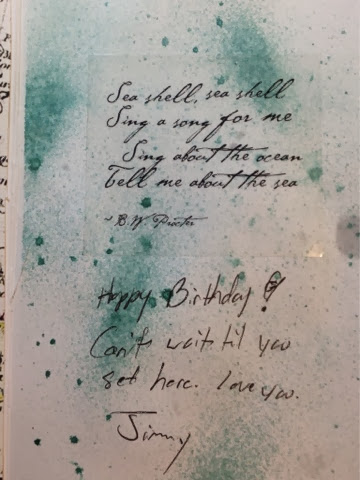 Sea shell, sea shell
Sing a song for me
Sing about the ocean
Tell me about the sea
~ B.W. Procter
Happy Birthday!
Can't wait til you
get here. Love you.
Jimmy